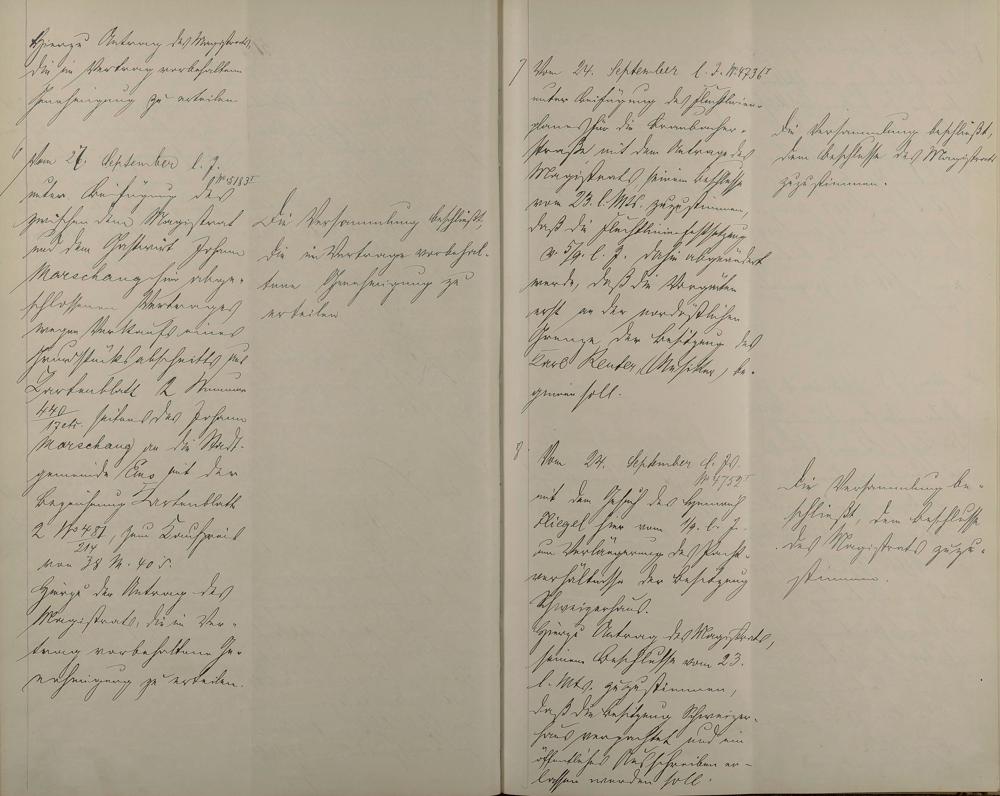 Hierzu Antrag des Magistrats,
die im Vertrag vorbehaltene
Genehmigung zu erteilen
6 Vom 26. September l. J.
No 5183 I
unter Beifügung des
zwischen dem Magistrat
und dem Gastwirt Johann
Marschang hier abge-
schlossenen Vertrages
wegen Verkaufs eines
Grundstücksabschnitts aus
Kartenblatt 2 Nummer
440
/17 etc. seitens des Johann
Marschang an die Stadt-
gemeinde Ems mit der
Bezeichnung Kartenblatt
2 No 481/214, zum Kaufpreis
von 38 M. 40 ₰.
Hierzu der Antrag des
Magistrats, die im Ver-
trag vorbehaltene Ge-
nehmigung zu erteilen.
Die Versammlung beschließt,
die im Vertrage vorbehal-
tene Genehmigung zu
erteilen
7 Vom 24. September l. J. No 4736 I
unter Beifügung des Fluchtlinien-
planes für die Braubacher-
straße mit dem Antrage des
Magistrats seinem Beschlusse
vom 23. l. Mts. zuzustimmen,
daß die Fluchtlinienfestsetzung
v. 5/9. l. J. dahin abgeändert
werde, daß die Vorgärten
erst an der nordöstlichen
Grenze der Besitzung des
Karl Reuter (Musiker) be-
ginnen soll.
Die Versammlung beschließt,
dem Beschlusse des Magistrats
zuzustimmen.
8 Vom 24. September l. Js.
No 4752 I
mit dem Gesuch des Heinrich
Fliegel hier vom 1/9. l. J.
um Verlängerung des Pacht-
verhältnisses der Besitzung
Schweizerhaus.
Hierzu Antrag des Magistrats,
seinem Beschlusse vom 23.
l. Mts. zuzustimmen,
daß die Besitzung Schweizer-
haus verpachtet und ein
öffentliches Ausschreiben er-
lassen werden soll.
Die Versammlung be-
schließt, dem Beschlusse
des Magistrats zuzu-
stimmen.